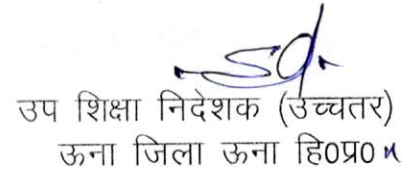 Sd.
उप शिक्षा निदेशक (उच्चतर)
ऊना जिला ऊना हि०प्र०